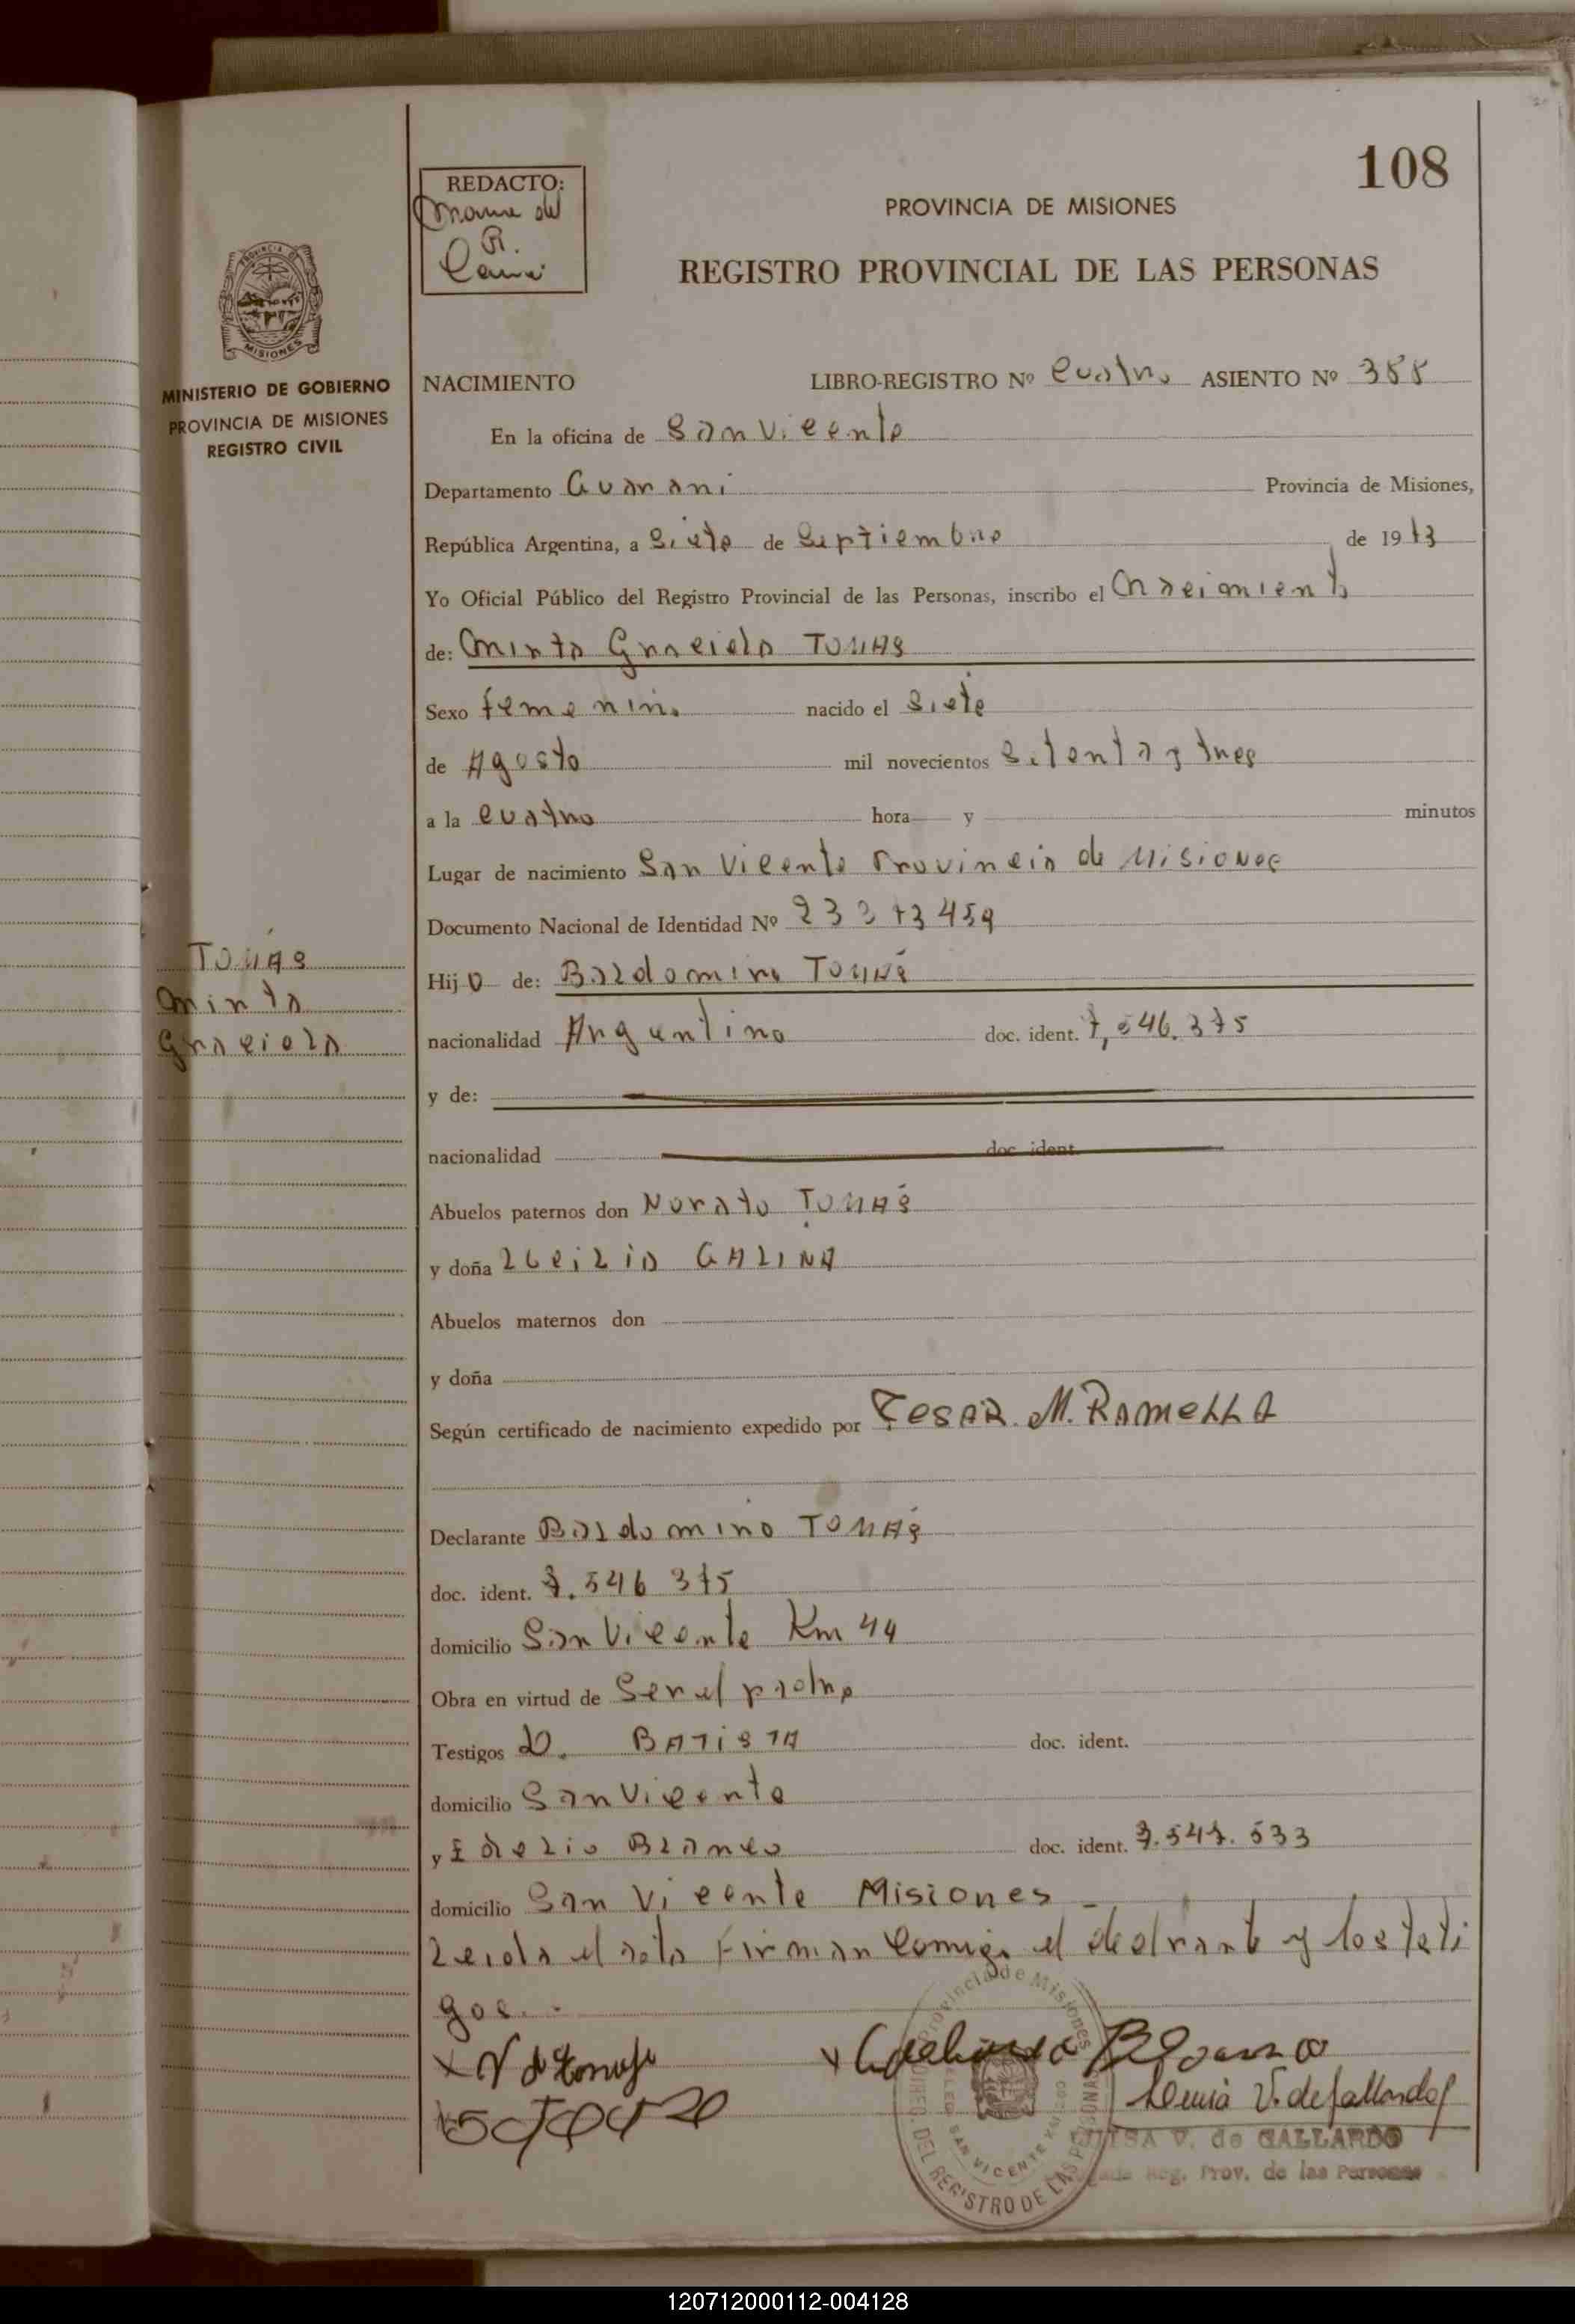 108
REDACTO:
PROVINCIA DE MISIONES
REGISTRO PROVINCIAL DE LAS PERSONAS
MISIONES
MINISTERIO DE GOBIERNO
PROVINCIA DE MISIONES
REGISTRO CIVIL
NACIMIENTO LIBRO-REGISTRO Nº Cuatro ASIENTO Nº 388
En la oficina de San Vicente
Departamento Guarani Provincia de Misiones,
República Argentina, a Siete de Septiembre de 1973
Yo Oficial Público del Registro Provincial de las Personas, inscribo el Nacimiento
de: Mirta Graciela TOMAS
Sexo femenino nacido el Siete
de Agosto mil novecientos Setenta y tres
a la cuatro hora y minutos
Lugar de nacimiento San Vicente Provincia de Misiones
Documento Nacional de Identidad Nº 23 373 459
TOMAS
Mirta
Graciela
Hij a de: Baldomiro TOMÁS
nacionalidad Argentino doc. ident. 7,546.375
y de:
nacionalidad doc ident.
Abuelos paternos don Norato TOMÁS
y doña GALINA
Abuelos maternos don
y doña
Según certificado de nacimiento expedido por CESAR. M. RAMELLA
Declarante Baldomiro TOMÁS
doc. ident. 7.546 375
domicilio San Vicente Km 44
Obra en virtud de Ser el padre
Testigos D. BATISTA doc. ident.
domicilio San Vicente
y Blanco doc. ident. 7.547.533
domicilio San Vicente Misiones
Leida el acta Firman Comigo el declarante y los testi
gos.
LUISA V. de GALLARDO
Reg. Prov. de las Personas
120712000112-004128